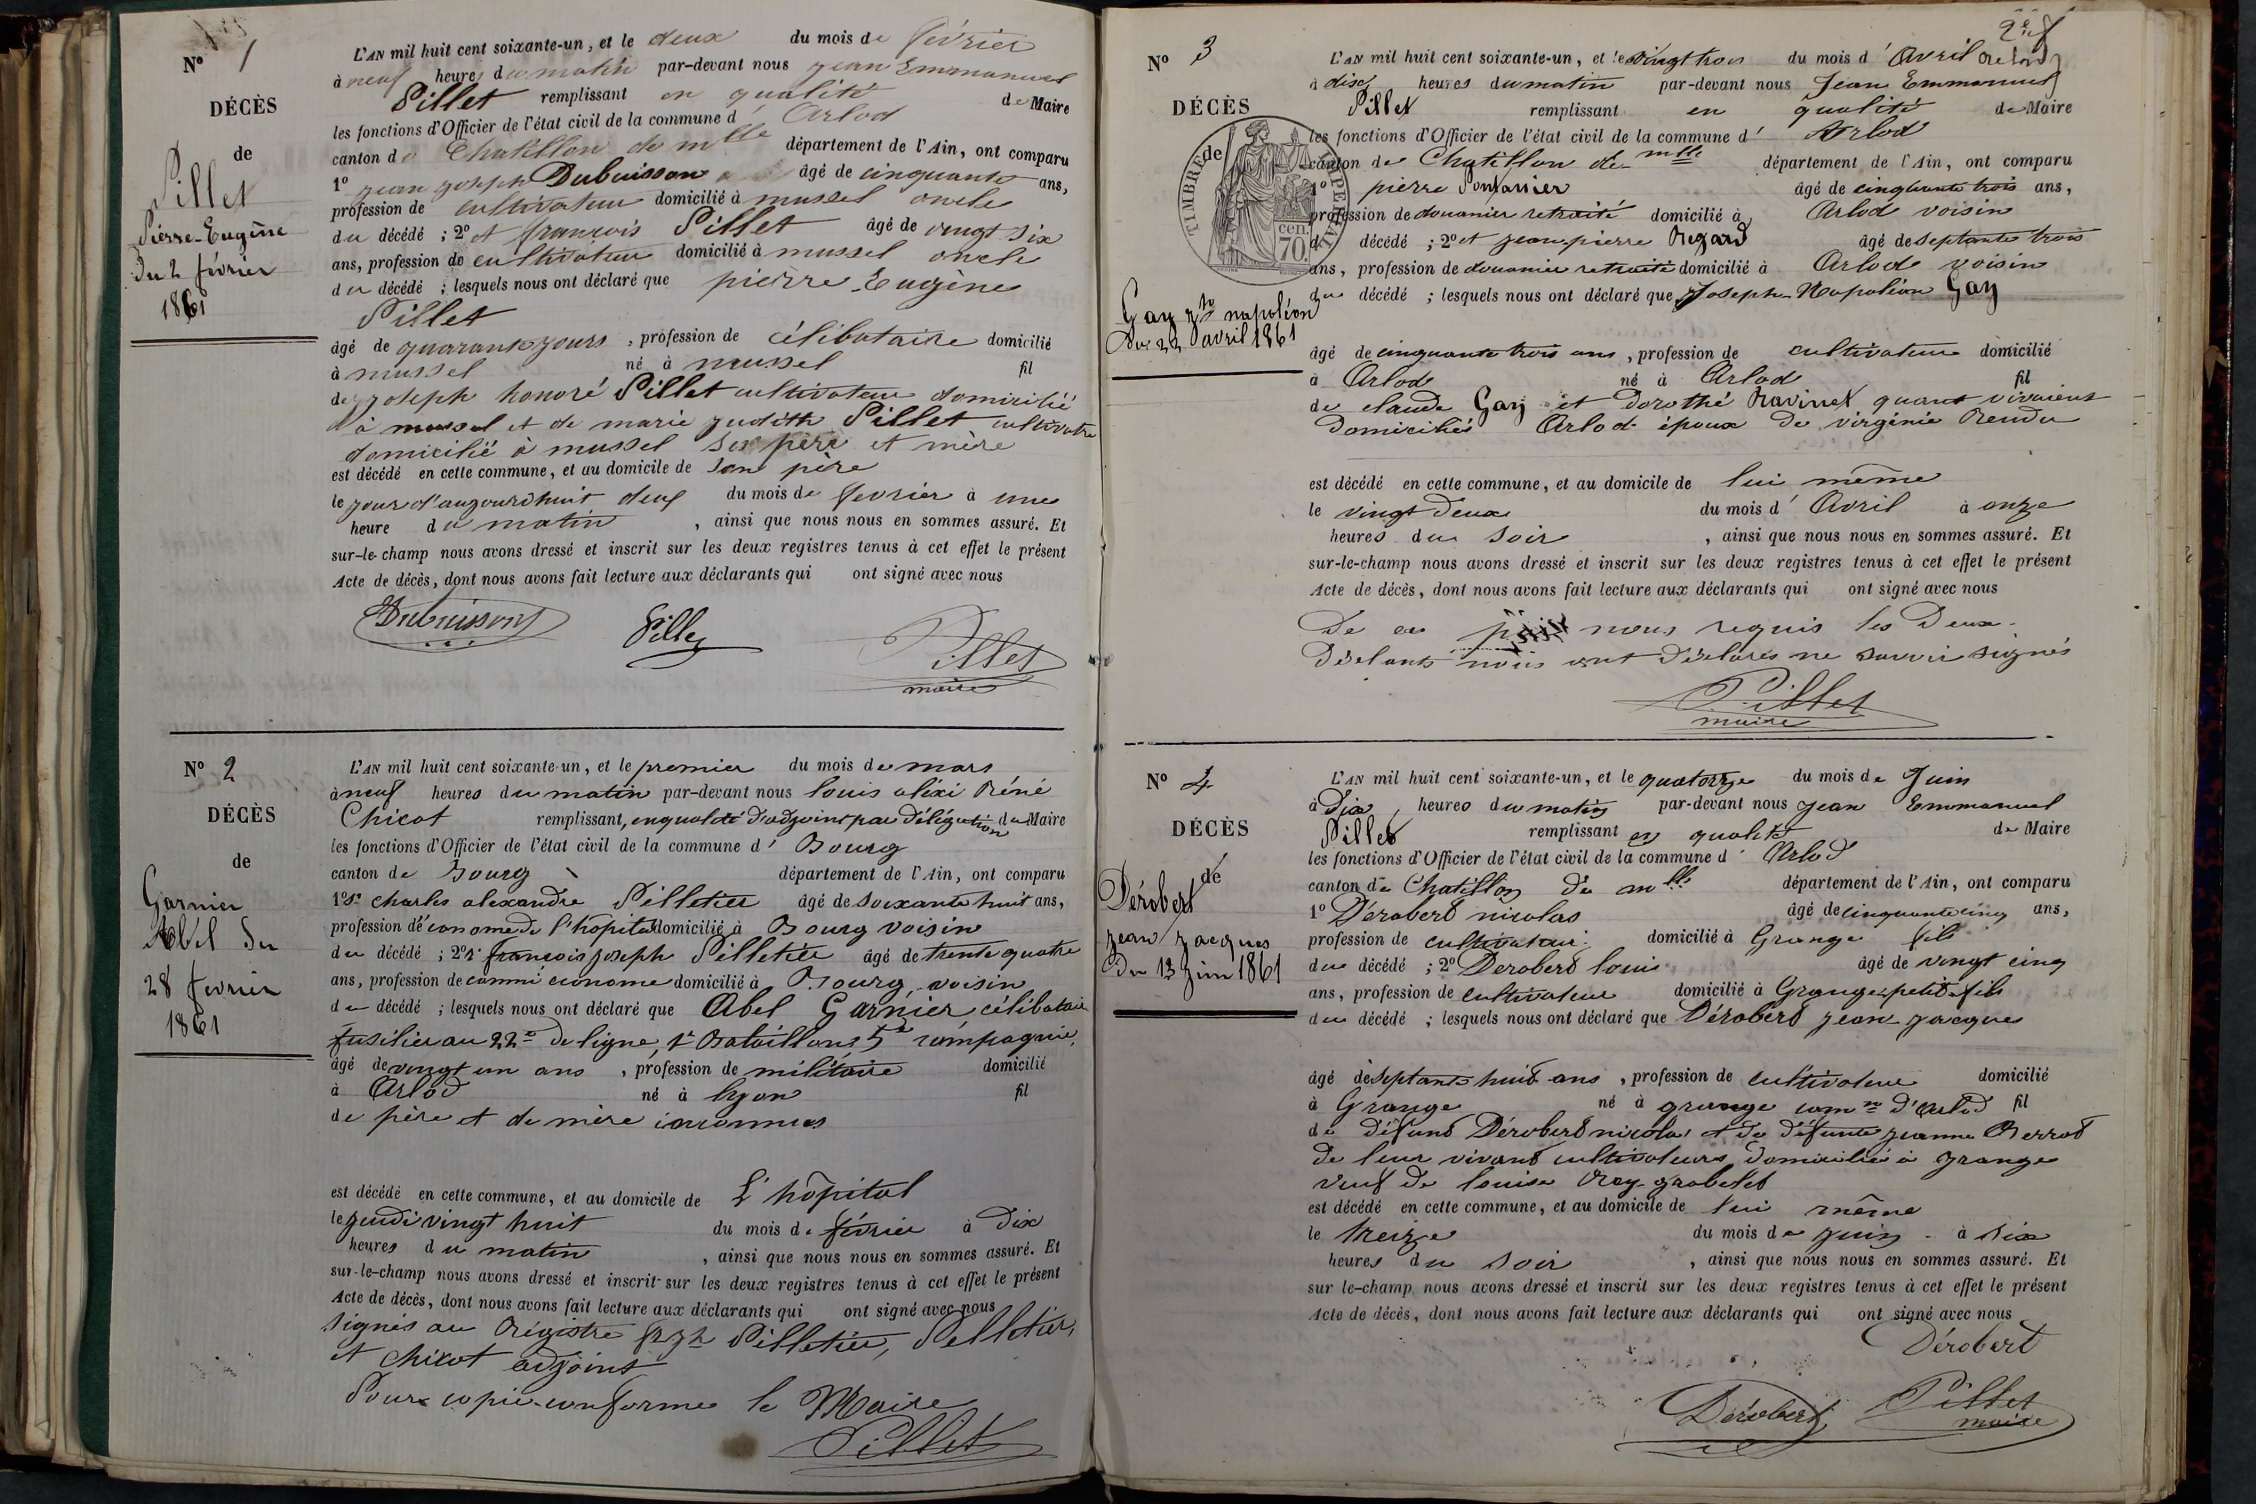 Nº 1
DÉCÈS
de
Pillet
Pierre-Eugène
du 2 février
1861
L'AN mil huit cent soixante-un, et le deux du mois de février
à neuf heures du matin par-devant nous jean Emmanuel
Pillet remplissant en qualité de Maire
les fonctions d'Officier de l'état civil de la commune d' Arlod
canton de Chatillon de mlle département de l'Ain, ont comparu
1º jean joseph Dubuisson âgé de cinquante ans,
profession de cultivateur domicilié à mussel oncle
du décédé ; 2º et francois Pillet âgé de vingt six
ans, profession de cultivateur domicilié à mussel oncle
du décédé ; lesquels nous ont déclaré que pierre Eugène
Pillet
âgé de quarante jours , profession de célibataire domicilié
à mussel né à mussel fil
de joseph honoré Pillet cultivateur domicilié
à mussel et de marie judith Pillet
domicilié à mussel ses père et mère
est décédé en cette commune, et au domicile de son père
le jour d'aujourd'huit deux du mois de fevrier à une
heure du matin , ainsi que nous nous en sommes assuré. Et
sur-le-champ nous avons dressé et inscrit sur les deux registres tenus à cet effet le présent
Acte de décès, dont nous avons fait lecture aux déclarants qui ont signé avec nous
Dubuisson Pillet Pillet
maire
Nº 2
DÉCÈS
de
Garnier
Abel du
28 fevrier
1861
L'AN mil huit cent soixante-un, et le premier du mois de mars
à neuf heures du matin par-devant nous louis aléxi Réné
Chicot remplissant, en qualité d'adjoint par délégation du Maire
les fonctions d'Officier de l'état civil de la commune d' Bourg
canton de Bourg département de l'Ain, ont comparu
1º Sr charles alexandre Pelletier âgé de soixante huit ans,
profession d'économe de l'hôpital domicilié à Bourg voisin
du décédé ; 2º Sr francois joseph Pelletier âgé de trente quatre
ans, profession de commi économe domicilié à Bourg voisin
du décédé ; lesquels nous ont déclaré que Abel Garnier célibataire
fusilier au 22e de ligne, 1r Bataillon, 5e compagnie,
âgé de vingt un ans , profession de militaire domicilié
à Arlod né à lyon fil
de père et de mère inconnus
est décédé en cette commune, et au domicile de L'hôpital
le jeudi vingt huit du mois de février à Dix
heures du matin , ainsi que nous nous en sommes assuré. Et
sur-le-champ nous avons dressé et inscrit sur les deux registres tenus à cet effet le présent
Acte de décès, dont nous avons fait lecture aux déclarants qui ont signé avec nous
signés au Régistre Pelletier, Pelletier,
et chicot adjoint
Pour copie conforme le Maire
Pillet
Nº 3
DÉCÈS
de
TIMBRE IMPERIAL
cen.
70.
Gay jh napoléon
du 22 avril 1861
L'AN mil huit cent soixante-un, et le vingt trois du mois d' Avril
à dix heures du matin par-devant nous Jean Emmanuel
Pillet remplissant en qualité de Maire
les fonctions d'Officier de l'état civil de la commune d' Arlod
canton de Chatillon de mlle département de l'Ain, ont comparu
1º pierre âgé de cinquante trois ans,
profession de douanier retraité domicilié à Arlod voisin
du décédé ; 2º et jean pierre Regard âgé de septante trois
ans, profession de douanier retraité domicilié à Arlod voisin
du décédé ; lesquels nous ont déclaré que Joseph Napoléon Gay
âgé de cinquante trois ans , profession de cultivateur domicilié
à Arlod né à Arlod fil
de claude Gay et Dorothé Ravinet quant vivaient
domiciliés Arlod époux de virginie Rendu
est décédé en cette commune, et au domicile de lui même
le vingt deux du mois d' Avril à onze
heures du soir , ainsi que nous nous en sommes assuré. Et
sur-le-champ nous avons dressé et inscrit sur les deux registres tenus à cet effet le présent
Acte de décès, dont nous avons fait lecture aux déclarants qui ont signé avec nous
De ce nous requis les Deux
Déclants nous ont déclarés ne savoir signés
Pillet
maire
Nº 4
DÉCÈS
de
Dérobert
jean jacques
du 13 juin 1861
L'AN mil huit cent soixante-un, et le quatorze du mois de Juin
à Dix heures du matin par-devant nous jean Emmanuel
Pillet remplissant en qualité de Maire
les fonctions d'Officier de l'état civil de la commune d' Arlod
canton de Chatillon de mlle département de l'Ain, ont comparu
1º Dérobert nicolas âgé de cinquante cinq ans,
profession de cultivateur domicilié à Grange fils
du décédé ; 2º Derobert louis âgé de vingt cinq
ans, profession de cultivateur domicilié à Grange petit-fils
du décédé ; lesquels nous ont déclaré que Dérobert jean jacques
âgé de septante huit ans , profession de cultivateur domicilié
à Grange né à grange comne d'Arlod fil
de défunt Dérobert nicolas et de défunte jeanne Berrod
de leur vivant cultivateurs domicilié à grange
veuf de louise Rey-grobelet
est décédé en cette commune, et au domicile de lui même
le treize du mois de juin à six
heures du soir , ainsi que nous nous en sommes assuré. Et
sur le-champ nous avons dressé et inscrit sur les deux registres tenus à cet effet le présent
Acte de décès, dont nous avons fait lecture aux déclarants qui ont signé avec nous
Dérobert
Dérobert Pillet
maire